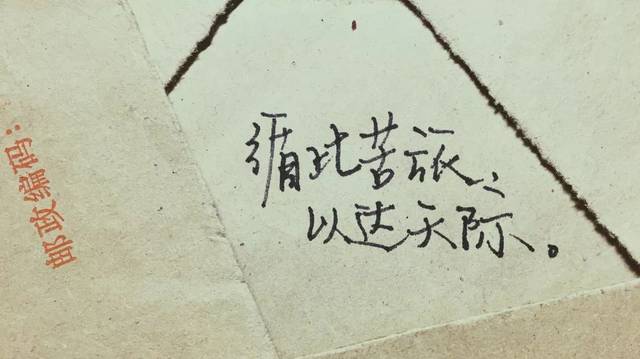 邮政编码:
循此苦旅,
以达天际。